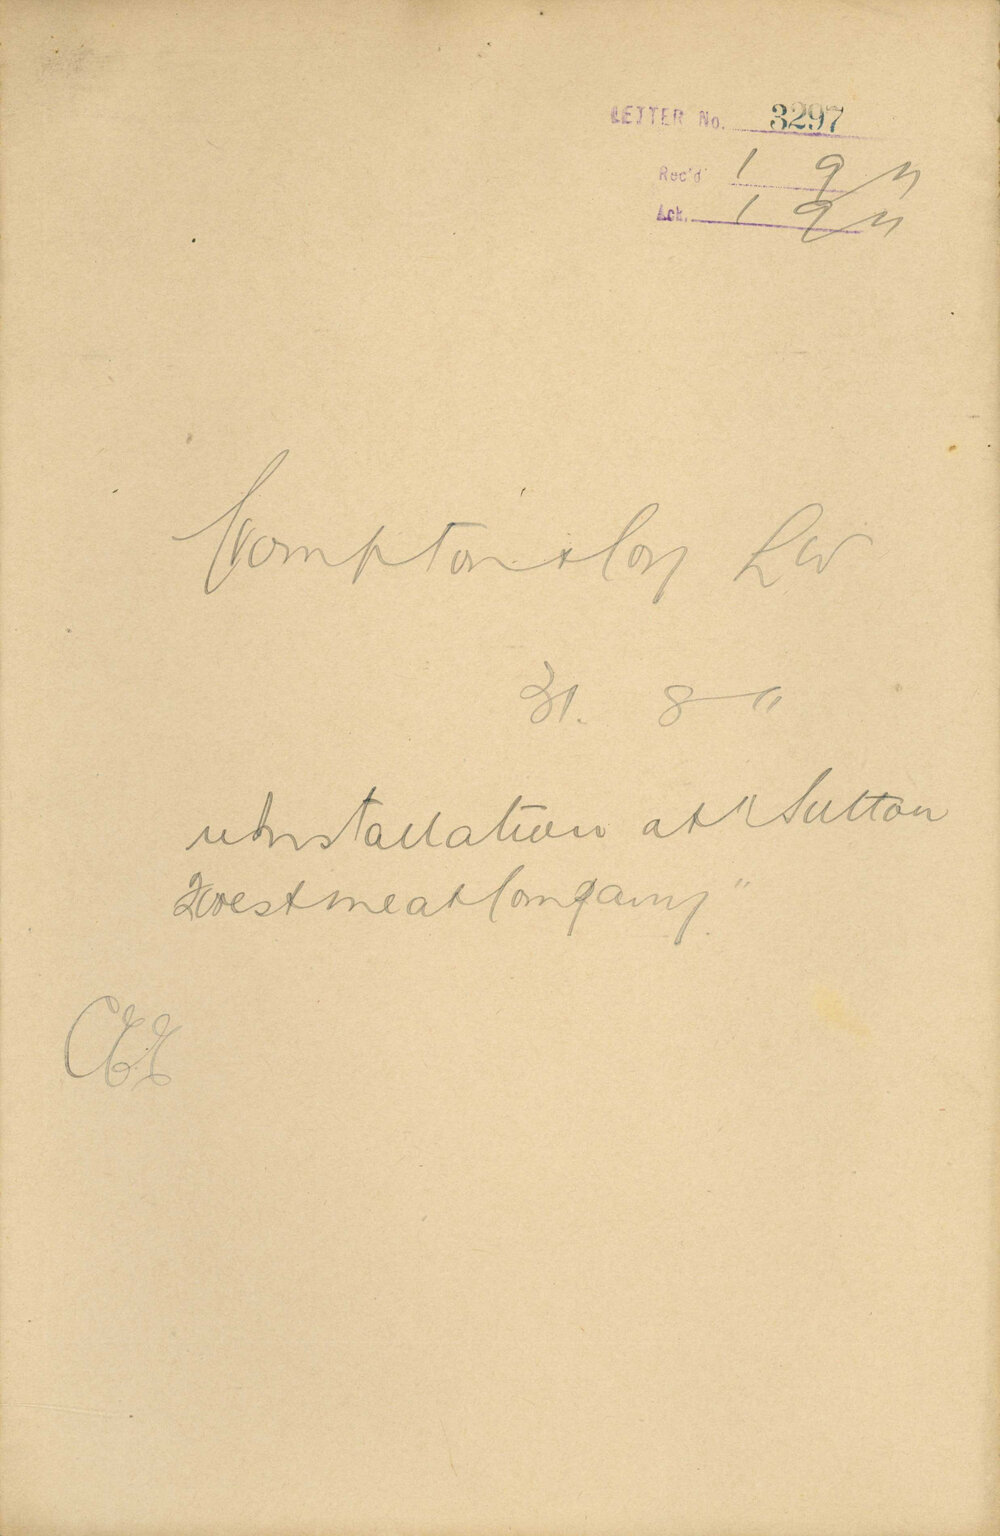 LETTER No. 3297
Rec'd 1 9 11
Ack. 1 9 11
Compton & Coy Ld
31. 8 11
re Installation at "Sutton
Forest meat Company"
CEE